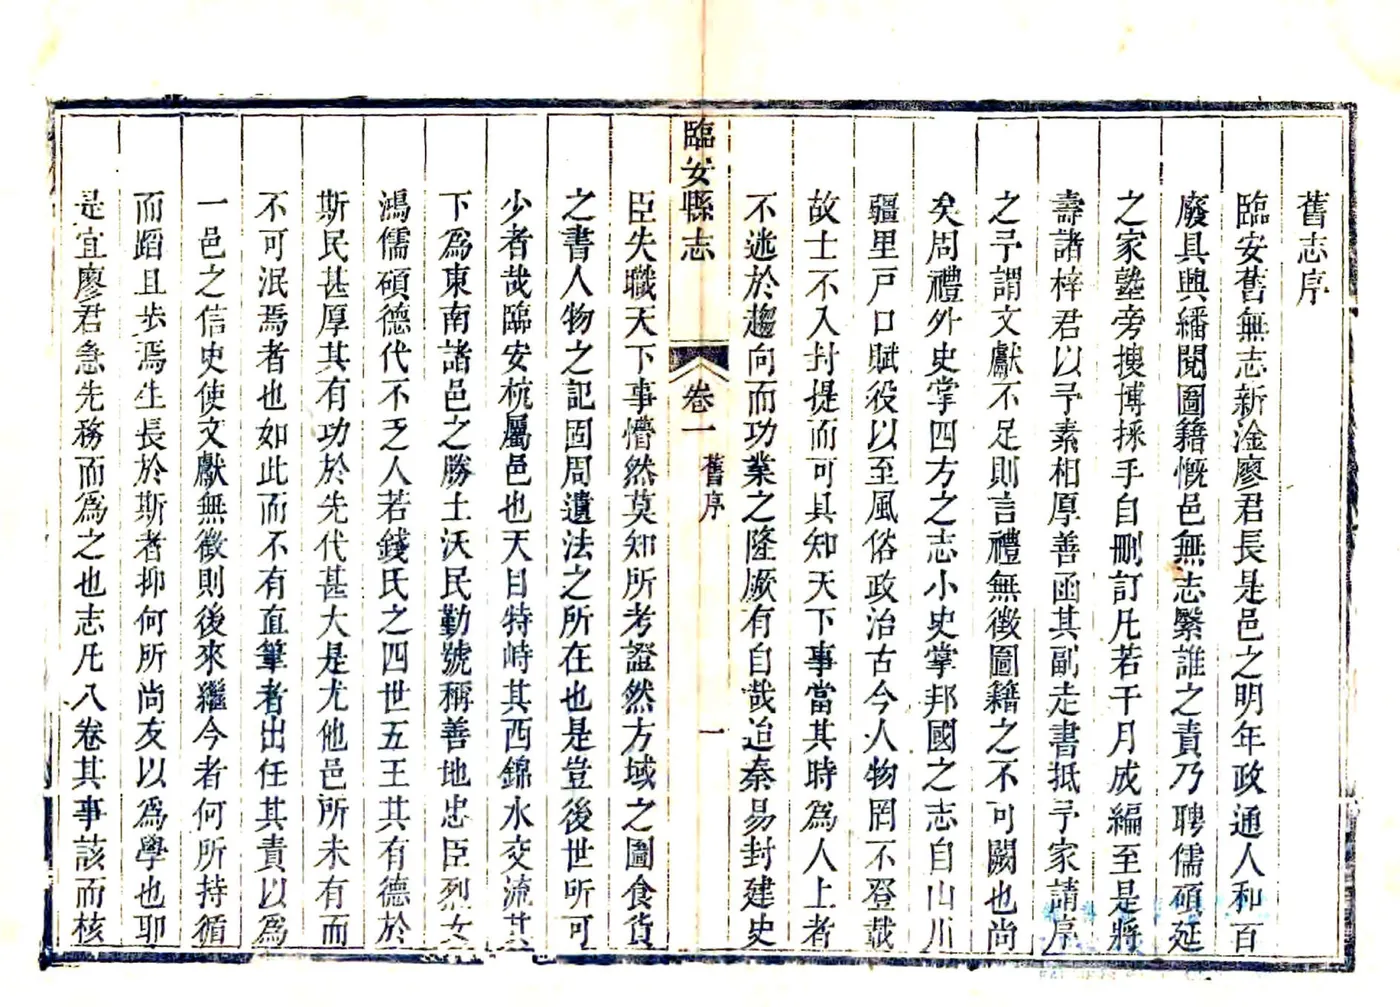 舊志序
臨安舊無志新淦廖君長是邑之明年政通人和百
廢具興繙閱圖籍慨邑無志繄誰之責乃聘儒碩延
之家塾旁搜博採手自刪訂凡若干月成編至是將
壽諸梓君以予素相厚善函其副走書抵予家請序
之予謂文獻不足則言禮無徵圖籍之不可闕也尚
矣周禮外史掌四方之志小史掌邦國之志自山川
疆里戸口賦役以至風俗政治古今人物罔不登載
故士不入封提而可具知天下事當其時為人上者
不迷於趨向而功業之隆厥有自哉迨秦易封建史
臨安縣志
卷一
舊序
一
臣失職天下事懵然莫知所考證然方域之圖食貨
之書人物之記固周遺法之所在也是豈後世所可
少者哉臨安杭屬邑也天目特峙其西錦水交流其
下為東南諸邑之勝土沃民勤號稱善地忠臣烈女
鴻儒碩德代不乏人若錢氏之四世五王其有德於
斯民甚厚其有功於先代甚大是尤他邑所未有而
不可泯焉者也如此而不有直筆者出任其責以為
一邑之信史使文獻無徵則後來繼今者何所持循
而蹈且步焉生長於斯者抑何所尚友以為學也耶
是宜廖君急先務而為之也志凡八卷其事該而核